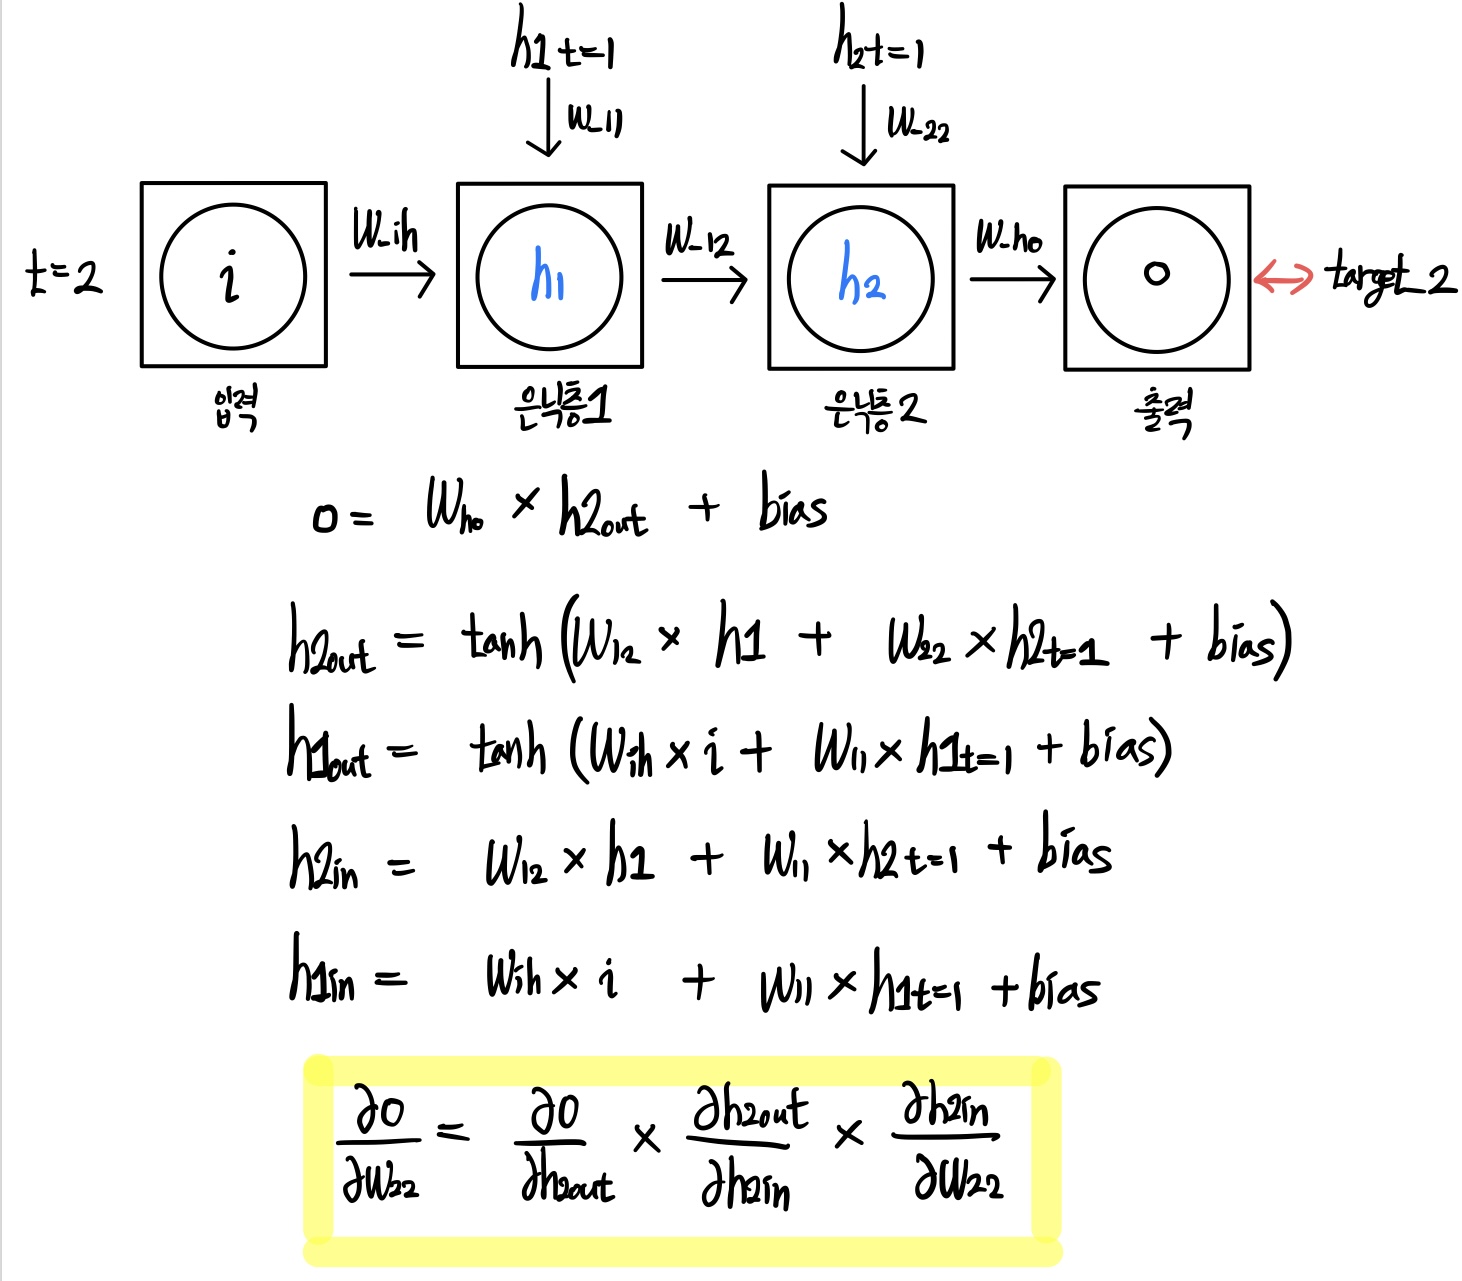 h1 t=1 h2 t=1
W_11 W_22
t=2 i W_ih h1 W_12 h2 W_ho o target_2
입력 은닉층1 은닉층2 출력
o = Who × h2out + bias
h2out = tanh (W12 × h1 + W22 × h2t=1 + bias)
h1out = tanh (Wih × i + W11 × h1t=1 + bias)
h2in = W12 × h1 + W11 × h2 t=1 + bias
h1in = Wih × i + W11 × h1t=1 + bias
∂o/∂W22 = ∂o/∂h2out × ∂h2out/∂h2in × ∂h2in/∂W22